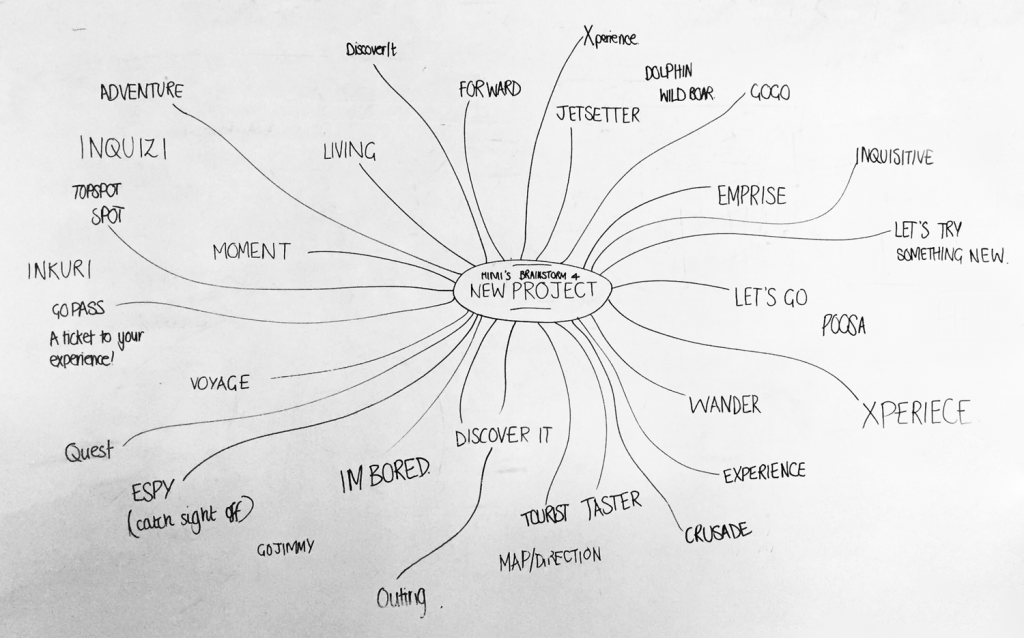 Xperience
Discover It
DOLPHIN
WILD BOAR
ADVENTURE
FORWARD
GOGO
JETSETTER
INQUIZI
LIVING
INQUISITIVE
TOPSPOT
SPOT
EMPRISE
LET'S TRY
SOMETHING NEW.
MOMENT
INKURI
MIMI'S BRAINSTORM 4
NEW PROJECT
LET'S GO
GO PASS
A ticket to your
experience!
POOSA
VOYAGE
WANDER
XPERIECE
Quest
DISCOVER IT
IM BORED.
EXPERIENCE
ESPY
(catch sight off)
TOURIST
TASTER
CRUSADE
GOJIMMY
MAP/DIRECTION
Outing.